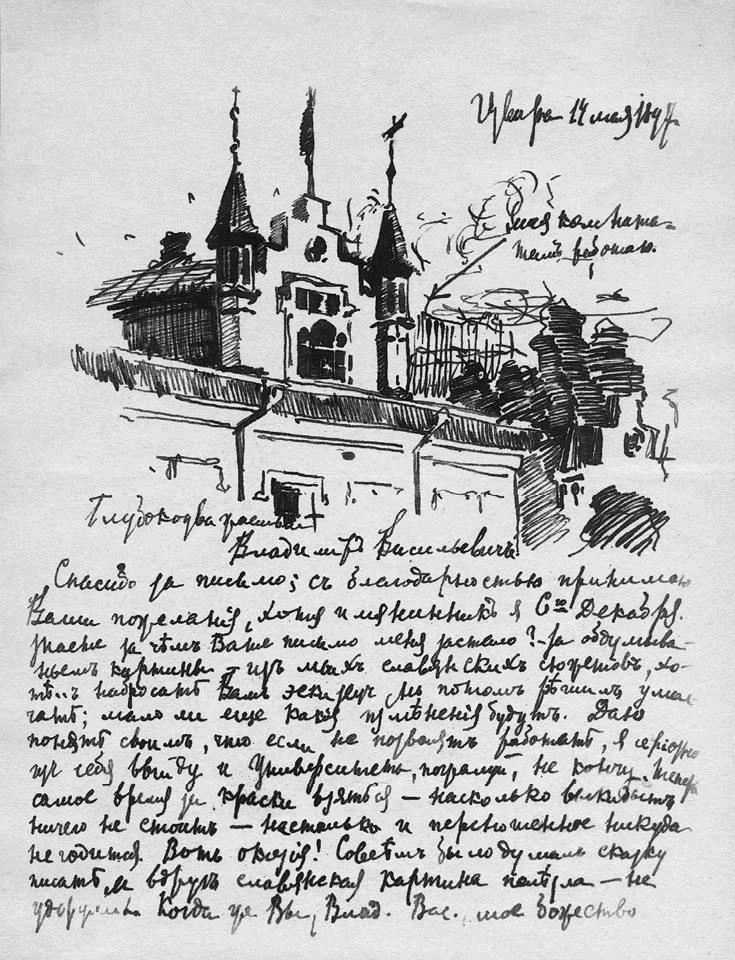 Извара 14 мая 1897
Моя комната-
тамъ работаю.
Глубокоуважаемый
Владимiръ Васильевичъ
Спасибо за письмо; съ благодарностью принимаю
Ваши пожеланiя, хотя имянинникъ я 6го Декабря.
Знаете за чѣмъ Ваше письмо меня застало? - За обдумыва-
ньемъ картины - изъ моихъ славянскихъ сюжетовъ, хо-
тѣлъ набросать Вамъ эскизъ, но потомъ рѣшилъ умол-
чать; мало ли еще какiя измѣненiя будутъ. Даю
понять своимъ, что если не позволятъ работать, я серiозно
изъ себя выйду и Университетъ, пожалуй, не кончу. Теперь
самое время за краски взяться — насколько выкидышъ
ничего не стоитъ — настолько и переношенное никуда
не годится. Вотъ оказiя! Совсѣмъ было думалъ сказку
писать, и вдругъ славянская картина полѣзла — не
удержишь. Когда же Вы, Влад. Вас., мое божество